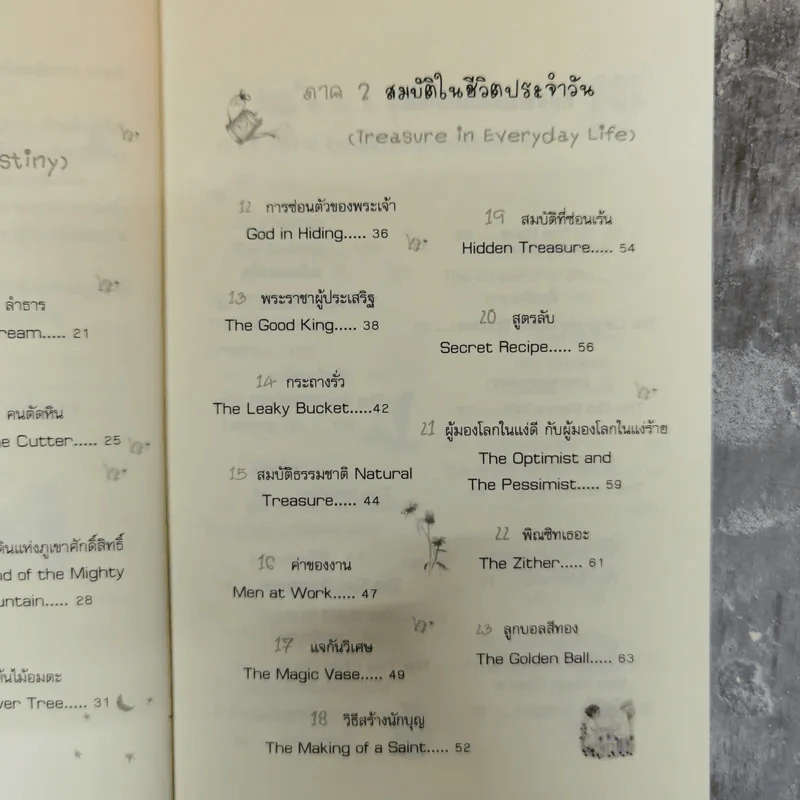 stiny)
ลำธาร
ream..... 21
คนตัดหิน
e Cutter..... 25
ดินแห่งภูเขาศักดิ์สิทธิ์
nd of the Mighty
untain..... 28
ต้นไม้อมตะ
ver Tree..... 31
ภาค 2 สมบัติในชีวิตประจำวัน
(Treasure in Everyday Life)
12 การซ่อนตัวของพระเจ้า
God in Hiding..... 36
13 พระราชาผู้ประเสริฐ
The Good King..... 38
14 กระถางรั่ว
The Leaky Bucket.....42
15 สมบัติธรรมชาติ Natural
Treasure..... 44
16 ค่าของงาน
Men at Work..... 47
17 แจกันวิเศษ
The Magic Vase..... 49
18 วิธีสร้างนักบุญ
The Making of a Saint..... 52
19 สมบัติที่ซ่อนเร้น
Hidden Treasure..... 54
20 สูตรลับ
Secret Recipe..... 56
21 ผู้มองโลกในแง่ดี กับผู้มองโลกในแง่ร้าย
The Optimist and
The Pessimist..... 59
22 พิณซิทเธอะ
The Zither..... 61
23 ลูกบอลสีทอง
The Golden Ball..... 63